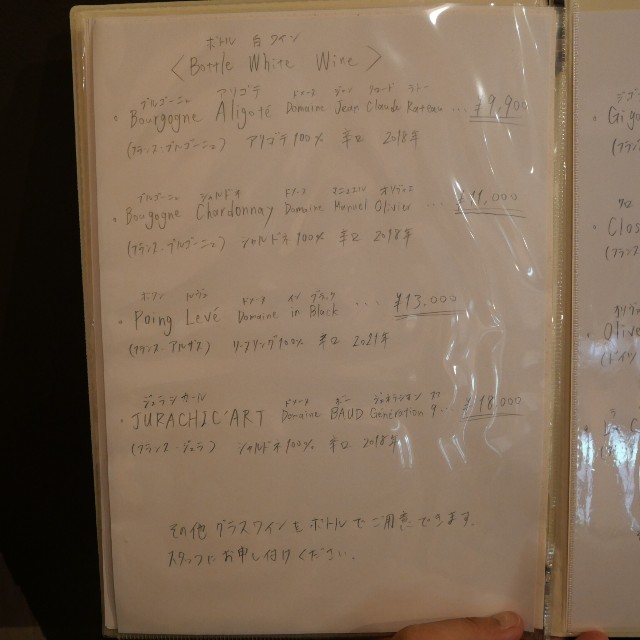 ボトル 白ワイン
< Bottle White Wine >
ブルゴーニュ アリゴテ ドメーヌ ジャン クロード ラトー
• Bourgogne Aligoté Domaine Jean Claude Rateau ... ¥9,900
(フランス・ブルゴーニュ) アリゴテ100% 辛口 2018年
ブルゴーニュ シャルドネ ドメーヌ マニュエル オリヴィエ
• Bougogne Chardonnay Domaine Manuel Olivier ... ¥11,000
(フランス・ブルゴーニュ) シャルドネ100% 辛口 2018年
ポワン ルヴェ ドメーヌ イン ブラック
• Poing Levé Domaine in Black ... ¥13,000
(フランス・アルザス) リースリング100% 辛口 2021年
ジュラシカール ドメーヌ ボー ジェネラシオン
• JURACHIC'ART Domaine BAUD Génération 9 ... ¥18,000
(フランス・ジュラ) シャルドネ100% 辛口 2018年
その他グラスワインをボトルでご用意できます。
スタッフにお申し付けください。
Clos
Olive